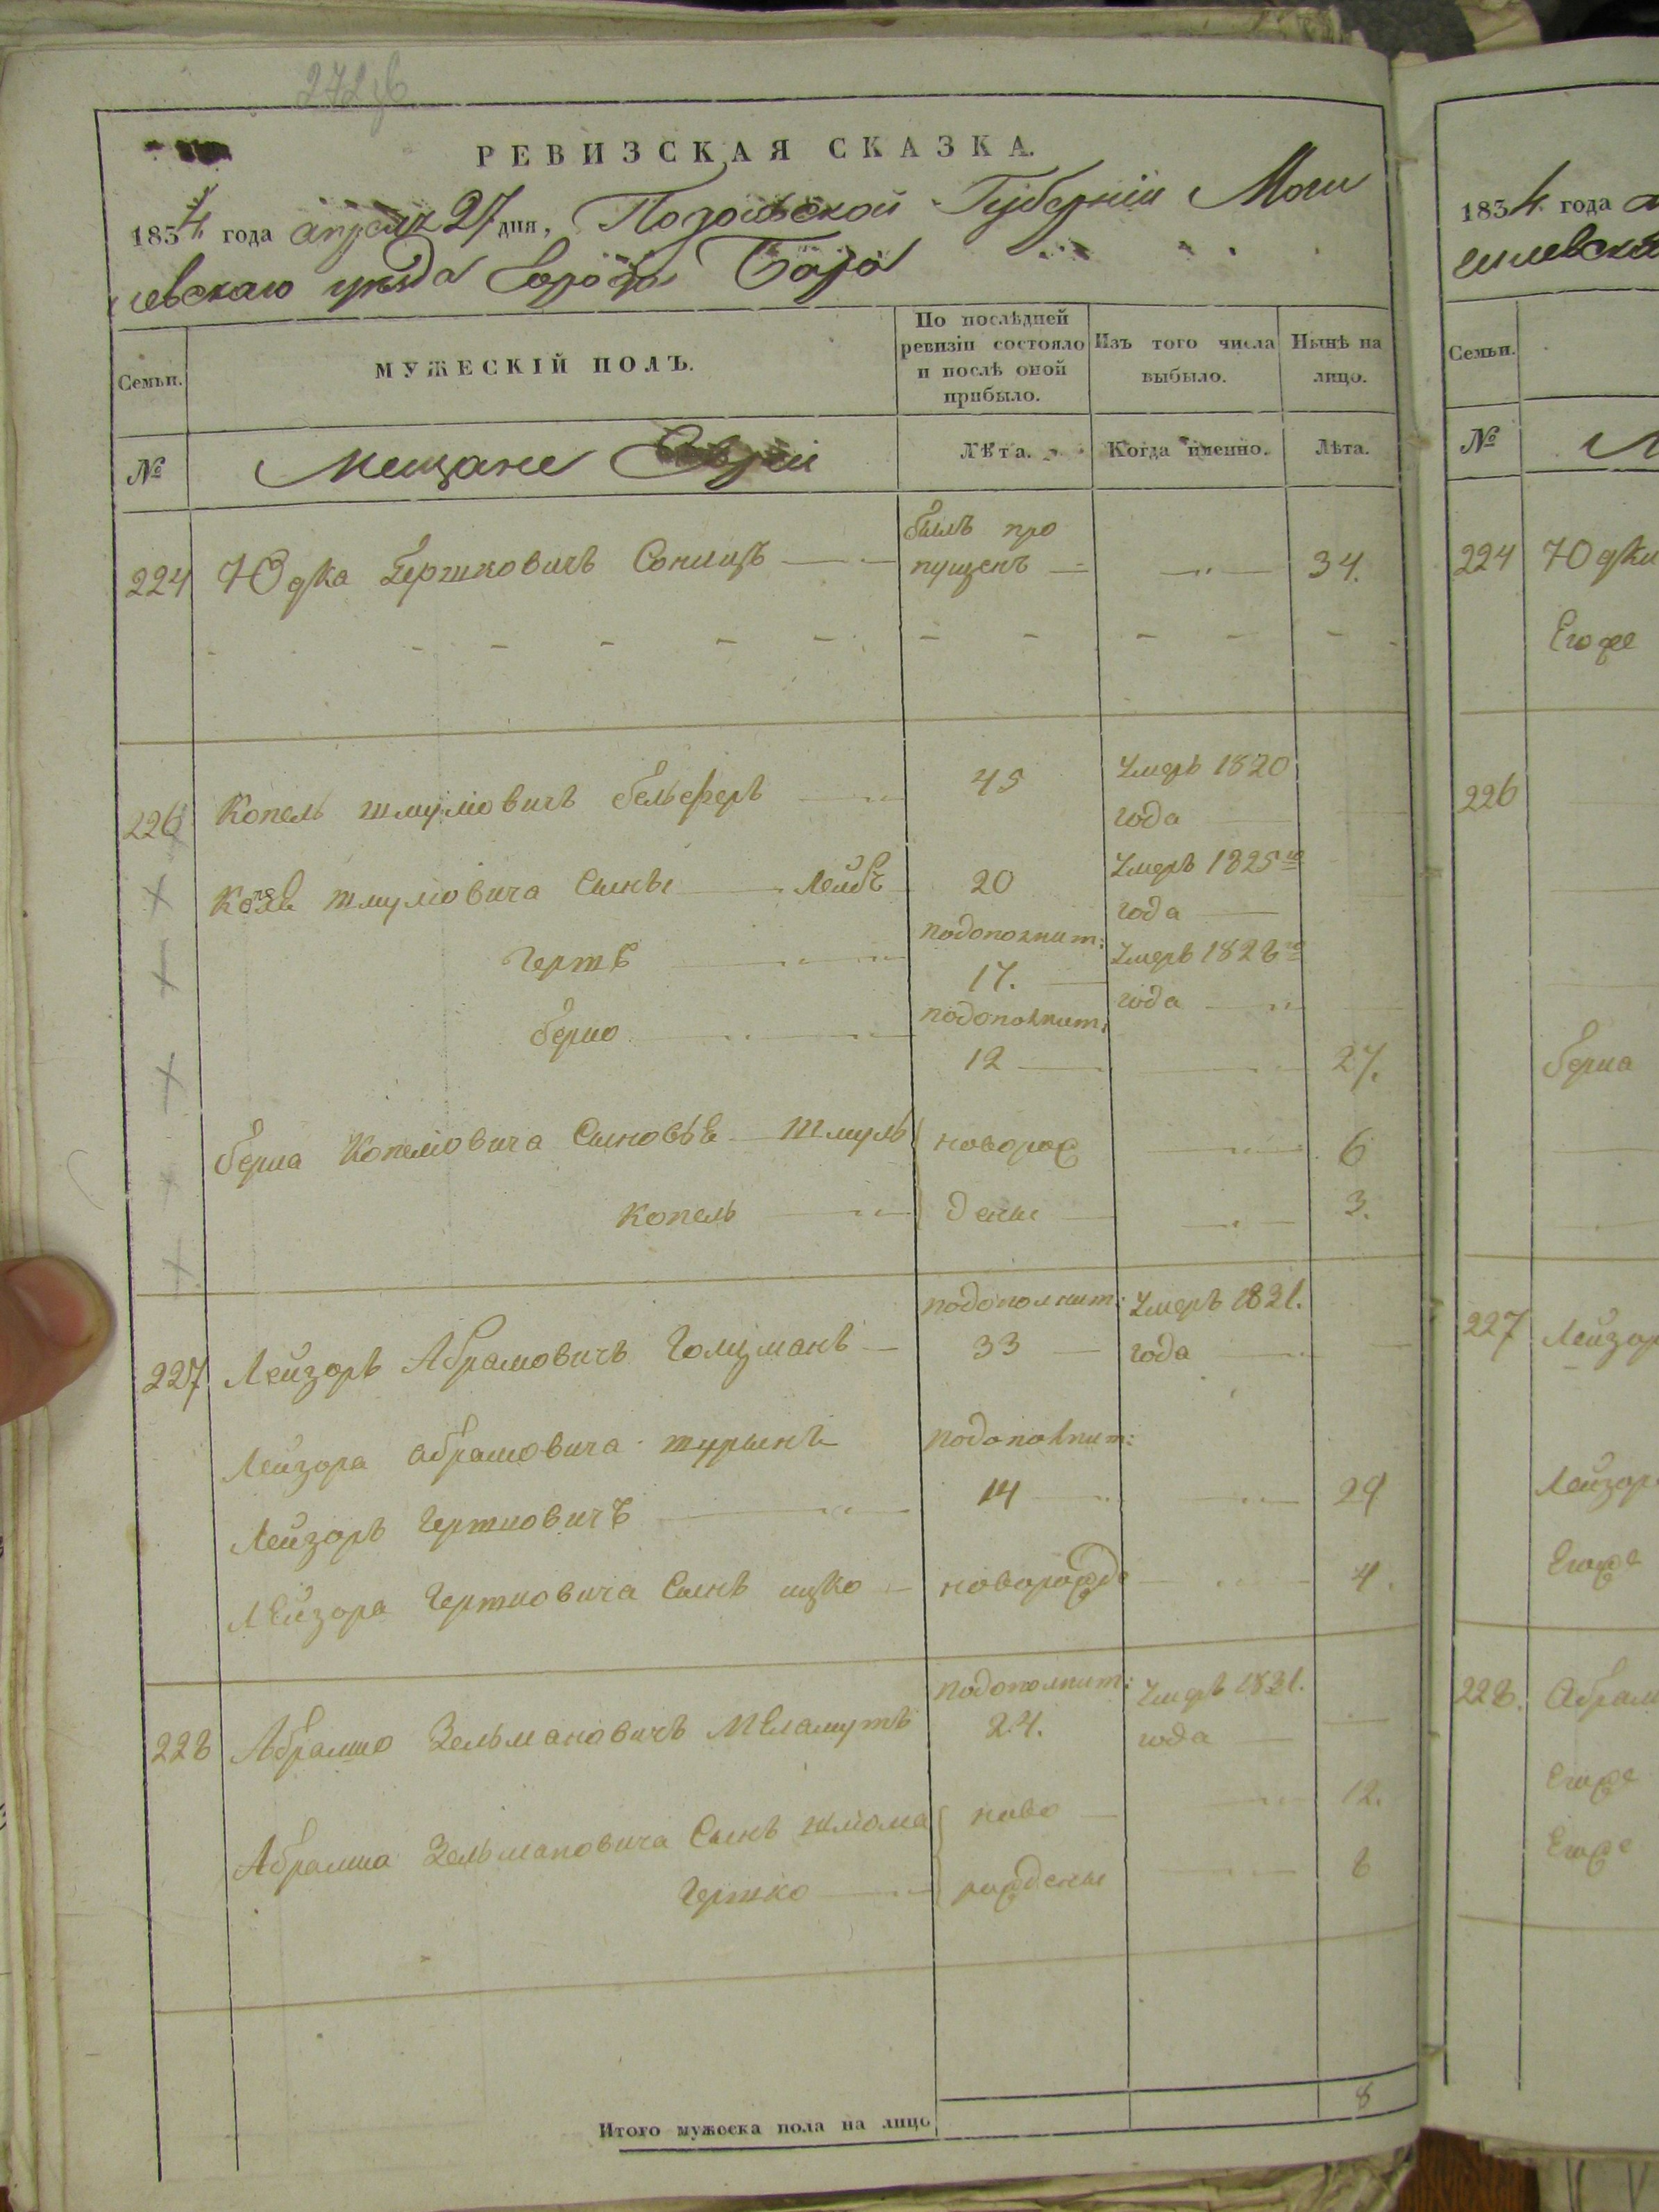 272об
РЕВИЗСКАЯ СКАЗКА.
1834 года апреля 27 дня, Подольской Губерніи Моги
левскаго уезда Города Бара
Семьи.
МУЖЕСКІЙ ПОЛЪ.
По послѣдней ревизіи состояло и послѣ оной прибыло.
Изъ того числа выбыло.
Нынѣ на лицо.
№
Мещане Евреи
Лѣта.
Когда именно.
Лѣта.
224 Юдка Бершковичъ былъ про
пущенъ 34.
226 Копель Шмулiовичъ 45 Умеръ 1820
года
Шмулiовича Сынъ Лейбъ 20 Умеръ 1825го
года
Гершъ подополнит: 17. Умеръ 1828го
года
Берко подополнит: 12 27.
Копелiовича Сыновья Шмуль новорож 6
Копель дены 3.
227 Лейзоръ Абрамовичъ Голцманъ подополнит: 33 Умеръ 1831.
года
Лейзора Абрамовича шурынъ подополнит:
Лейзоръ Гершковичъ 14 29
Лейзора Гершковича Сынъ ицко новорожде 4.
228 Абрамко Зельмановичъ Меламутъ подополнит: 24. Умеръ 1831.
года
Зельмановича Сынъ шлома ново 12.
Гершко рождены 8
Итого мужеска пола на лицо 8
1834 года
Семьи.
№
224 Юдки
Его же
226
227 Лейзор
Лейзор
Его же
228. Абрам
Его же
Его же